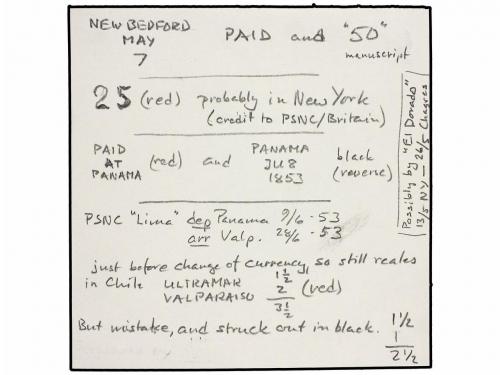 NEW BEDFORD
MAY
7
PAID and "50"
manuscript
25 (red) probably in New York
(credit to PSNC/Britain)
PAID
AT
PANAMA
(red) and
PANAMA
JU 8
1853
black
(reverse)
Possibly by "El Dorado"
13/5 NY – 26/5 Chagres
PSNC "Lima" dep Panama 9/6 - 53
arr Valp. 28/6 - 53
just before change of currency, so still reales
in Chile ULTRAMAR 1 1/2
VALPARAISO 2 (red)
3 1/2
But mistake, and struck out in black. 1 1/2
1
2 1/2